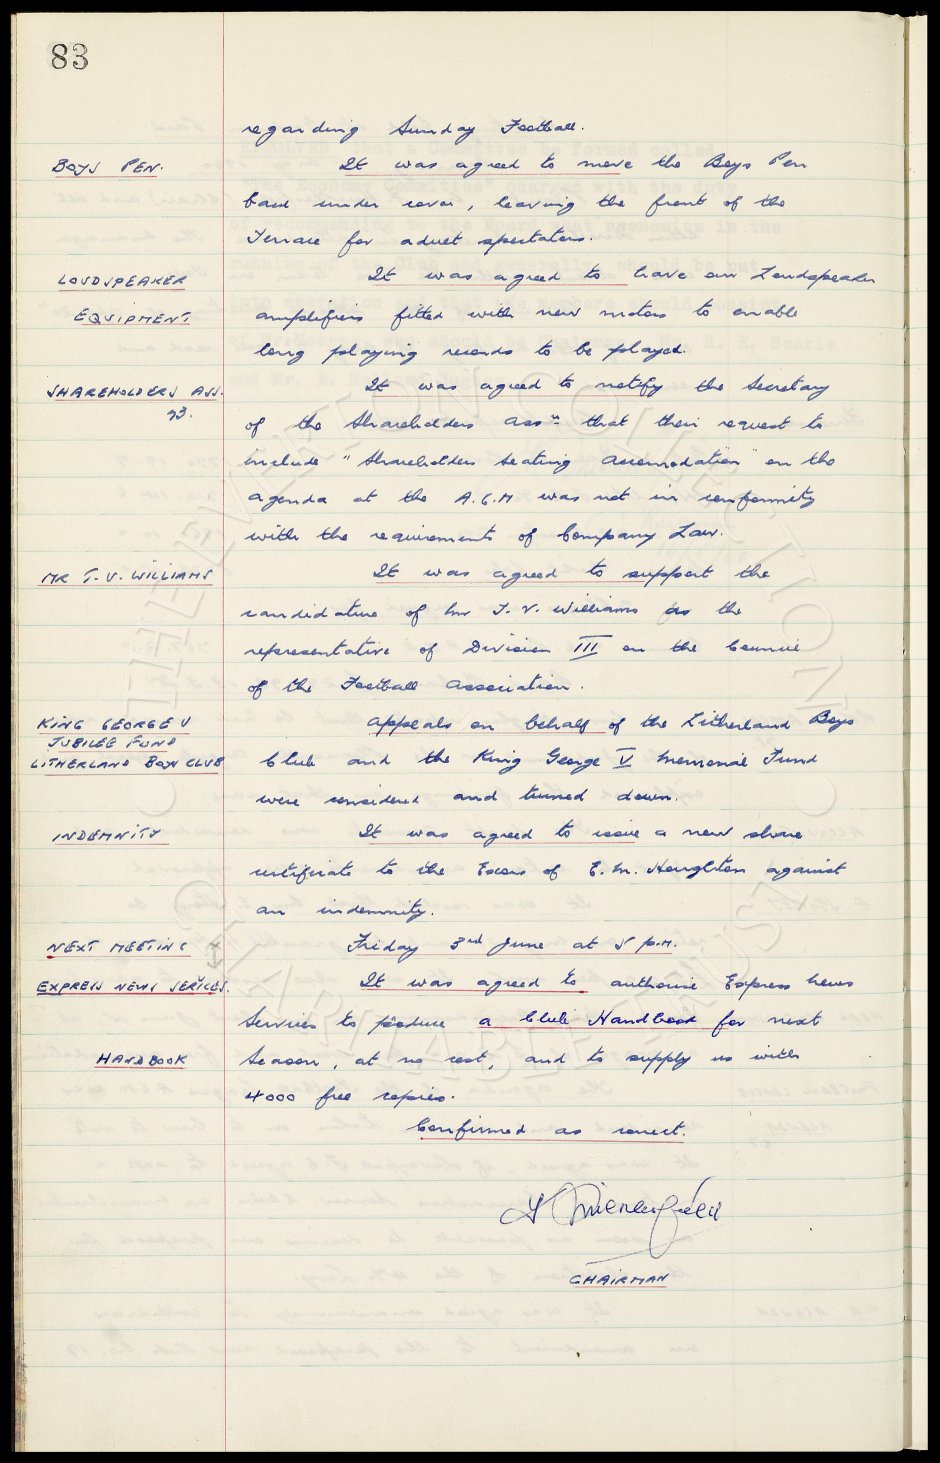 83
regarding Sunday Football.
BOYS PEN. It was agreed to move the Boys Pen
back under cover, leaving the front of the
Terrace for adult spectators.
LOUDSPEAKER It was agreed to have our Loudspeaker
EQUIPMENT amplifiers fitted with new motors to enable
long playing records to be played.
SHAREHOLDERS ASS. It was agreed to notify the Secretary
93. of the Shareholders Assn that their request to
include "Shareholders Seating Accomodation" on the
agenda at the A.G.M was not in conformity
with the requirements of Company Law.
MR T. V. WILLIAMS It was agreed to support the
candidature of Mr T. V. Williams as the
representative of Division III on the Council
of the Football Association.
KING GEORGE V Appeals on behalf of the Litherland Boys
JUBILEE FUND
LITHERLAND BOYS CLUB Club and the King George V Memorial Fund
were considered and turned down.
INDEMNITY It was agreed to issue a new share
certificate to the Excors of E. M. Houghton against
an indemnity.
NEXT MEETING Friday 3rd June at 5 p.m.
EXPRESS NEWS SERVICES. It was agreed to authorise Express News
Services to produce a Club Handbook for next
HANDBOOK Season, at no cost, and to supply us with
4000 free copies.
Confirmed as correct.
CHAIRMAN
THE EVERTON COLLECTION
CHARITABLE TRUST